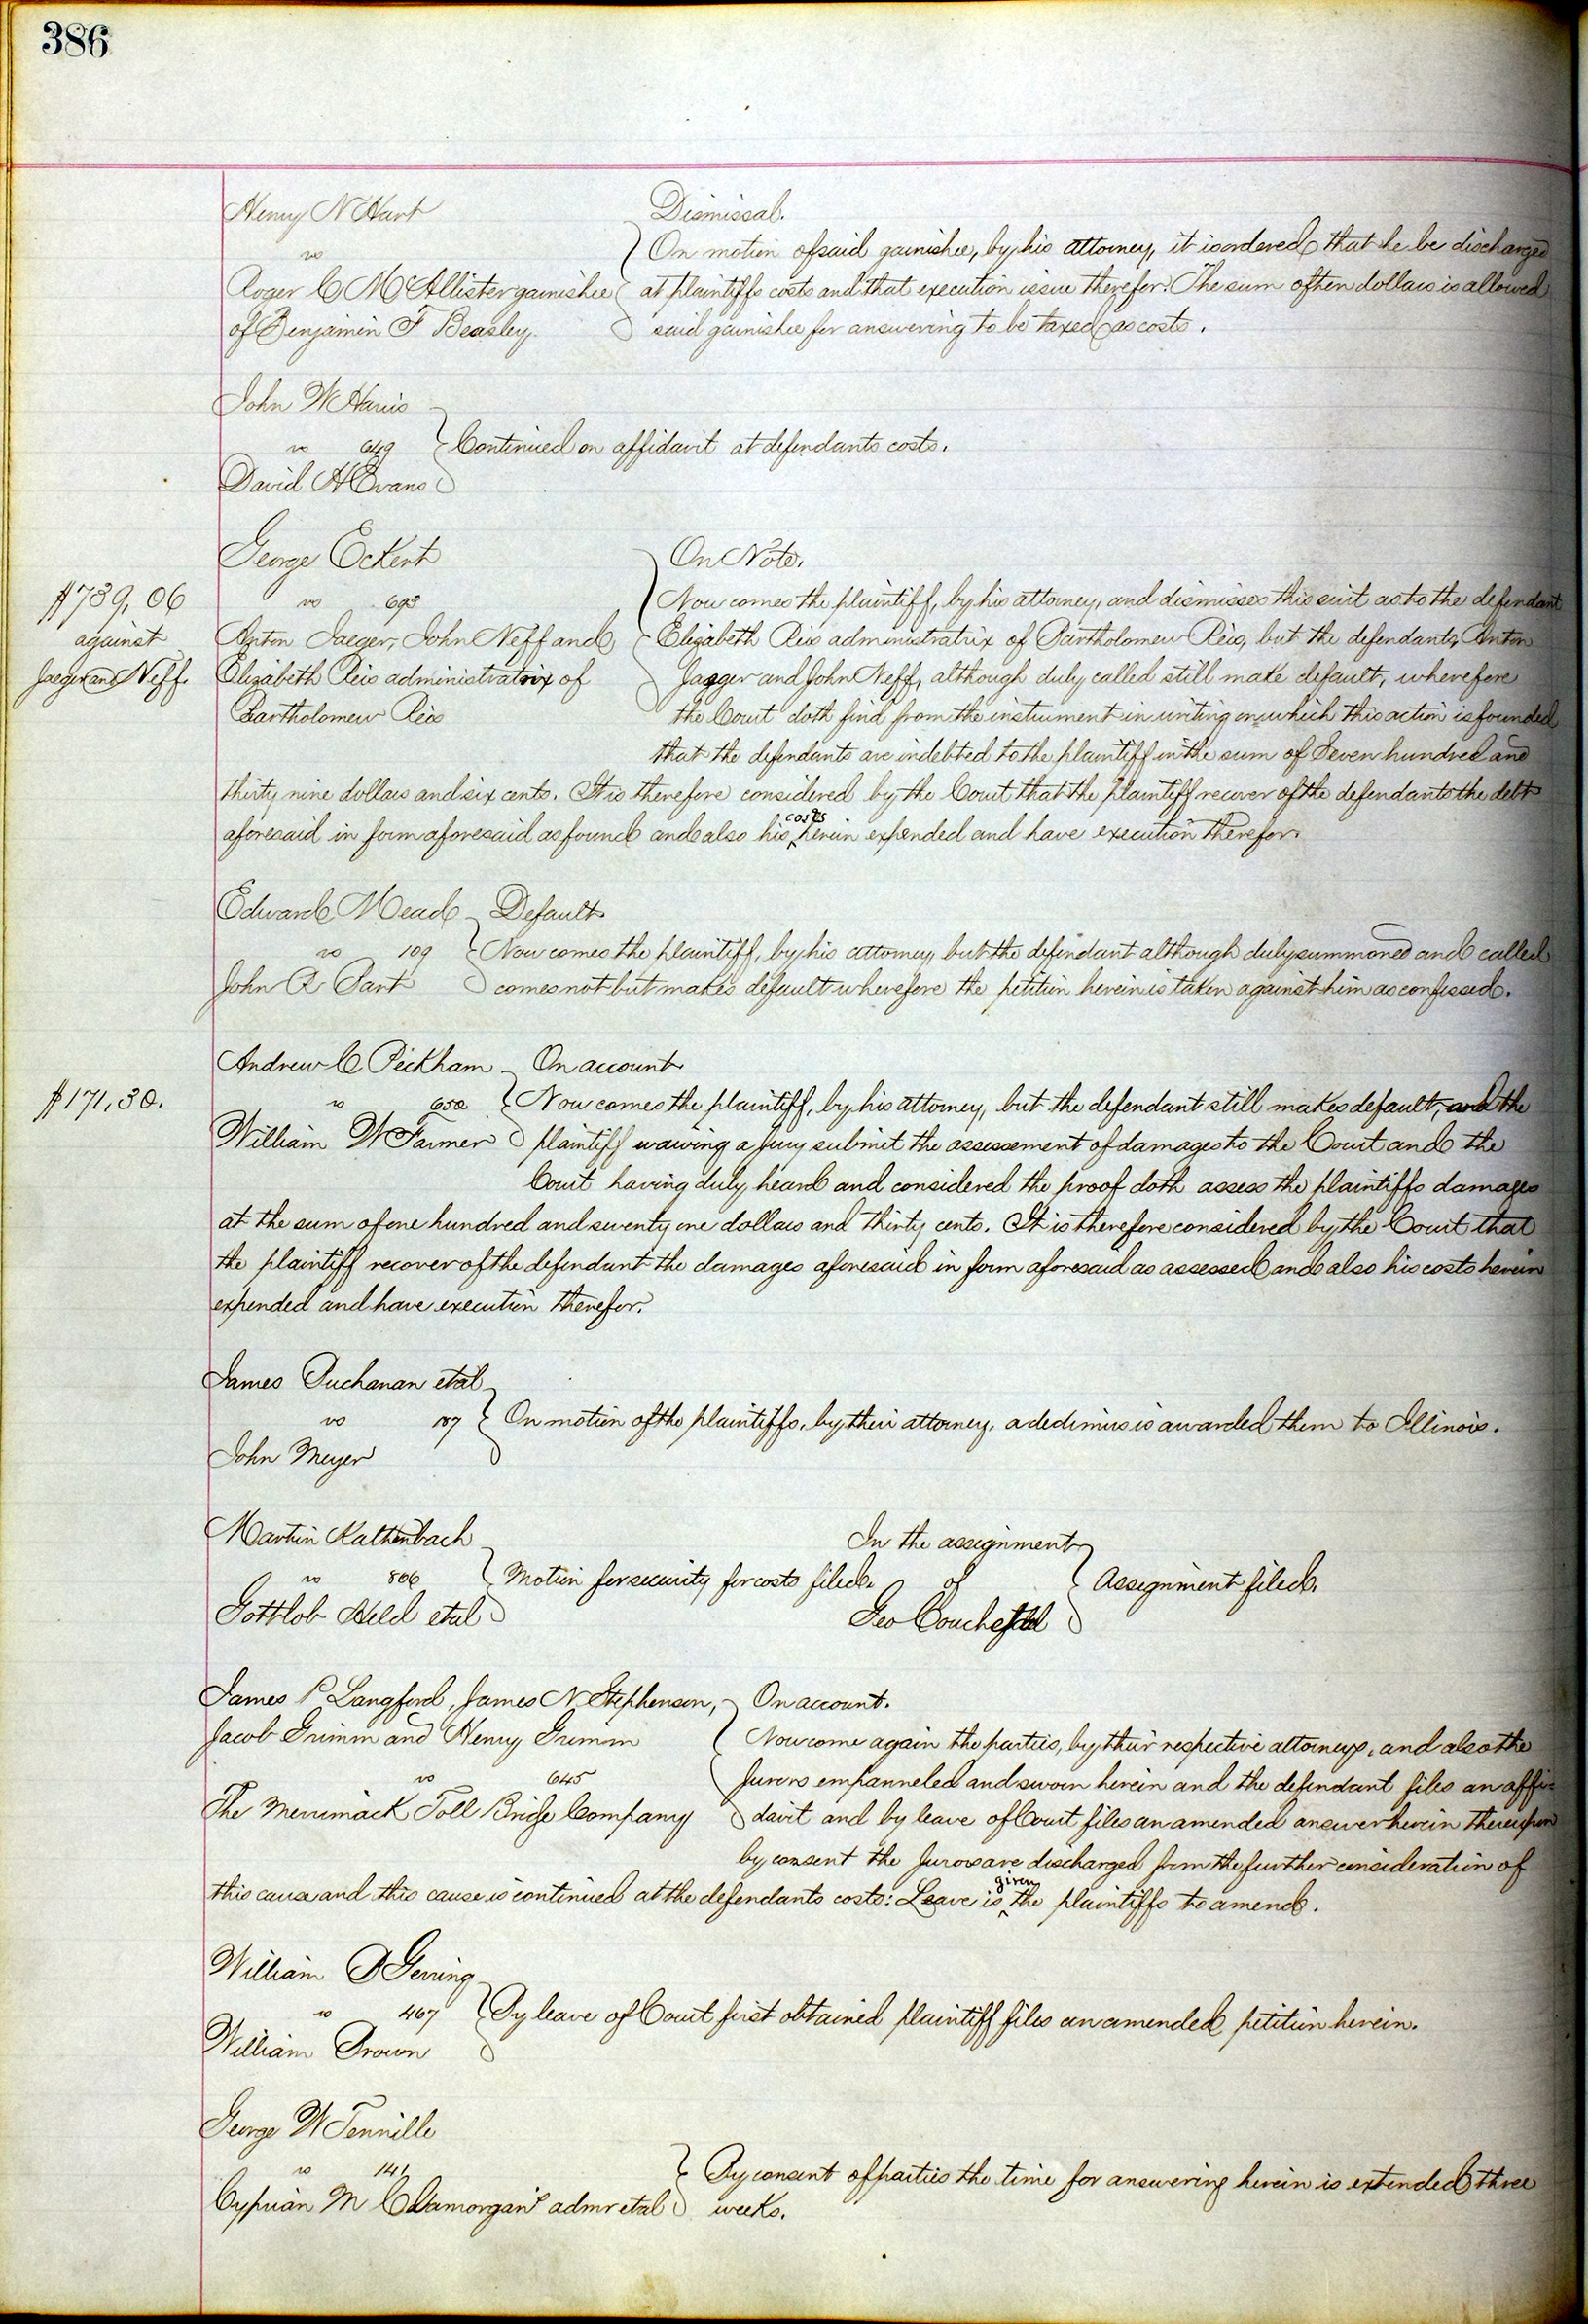 386
Henry N Hart
vs
Roger C McAllister garnishee
of Benjamin F Beasley.
Dismissal.
On motion of said garnishee, by his attorney, it is ordered that he be discharged
at plaintiffs costs and that execution issue therefor. The sum of ten dollars is allowed
said garnishee for answering to be taxed as costs.
John W Harris
vs 649
David H Evans
Continued on affidavit at defendants costs.
$739,06
against
Jaeger and Neff.
George Eckert
vs 693
Anton Jaeger, John Neff and
Elizabeth Reis administratrix of
Bartholomew Reis
On Note.
Now comes the plaintiff, by his attorney, and dismisses this suit as to the defendant
Elizabeth Reis administratrix of Bartholomew Reis, but the defendants, Anton
Jaeger and John Neff, although duly called still make default, wherefore
the Court doth find from the instrument in writing on which this action is founded
that the defendants are indebted to the plaintiff in the sum of Seven hundred and
thirty nine dollars and six cents. It is therefore considered by the Court that the plaintiff recover of the defendants the debt
aforesaid in form aforesaid as found and also his costs herein expended and have execution therefor.
Edward Mead
vs 109
John R Bart
Default
Now comes the plaintiff, by his attorney, but the defendant although duly summoned and called
comes not but makes default wherefore the petition herein is taken against him as confessed.
$171,30.
Andrew C Peckham
vs 652
William W Farmer
On account
Now comes the plaintiff, by his attorney, but the defendant still makes default, and the
plaintiff waiving a jury submit the assessment of damages to the Court and the
Court having duly heard and considered the proof doth assess the plaintiffs damages
at the sum of one hundred and seventy one dollars and thirty cents. It is therefore considered by the Court that
the plaintiff recover of the defendant the damages aforesaid in form aforesaid as assessed and also his costs herein
expended and have execution therefor.
James Buchanan et al
vs 187
John Meyer
On motion of the plaintiffs, by their attorney, a dedimus is awarded them to Illinois.
Martin Kaltenbach
vs 806
Gottlob Held et al
Motion for security for costs filed.
In the assignment
of
Geo
Assignment filed.
James P Langford, James N Stephenson,
Jacob Grimm and Henry Grimm
vs 645
The Merrimack Toll Bridge Company
On account.
Now come again the parties, by their respective attorneys, and also the
Jurors empanneled and sworn herein and the defendant files an affi-
davit and by leave of Court files an amended answer herein thereupon
by consent the Jurors are discharged from the further consideration of
this cause and this cause is continued at the defendants costs: Leave is given the plaintiffs to amend.
William D Gerring
vs 467
William Brown
By leave of Court first obtained plaintiff files an amended petition herein.
George W Tennille
vs 141
Cyprian M Clamorgan's admr et al
By consent of parties the time for answering herein is extended three
weeks.